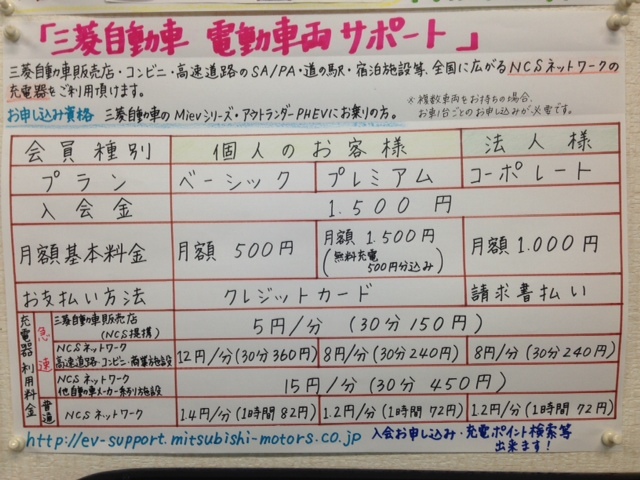 「三菱自動車 電動車両 サポート」
三菱自動車販売店・コンビニ・高速道路のSA/PA・道の駅・宿泊施設等、全国に広がるNCSネットワークの
充電器をご利用頂けます。
※複数車両をお持ちの場合、
お車1台ごとのお申し込みが必要です。
お申し込み資格 三菱自動車のMievシリーズ・アウトランダーPHEVにお乗りの方。
会員種別 個人のお客様 法人様
プラン ベーシック プレミアム コーポレート
入会金 1.500円
月額基本料金 月額 500円 月額 1.500円 月額 1.000円
(無料充電
500円分込み)
お支払い方法 クレジットカード 請求書払い
充電器利用料金
急速
三菱自動車販売店
(NCS提携)
5円/分 (30分150円)
NCSネットワーク
高速道路・コンビニ・商業施設
12円/分(30分360円) 8円/分(30分240円) 8円/分(30分240円)
NCSネットワーク
他自動車メーカー系列施設
15円/分(30分 450円)
普通
NCSネットワーク 1.4円/分(1時間 82円) 1.2円/分(1時間 72円) 1.2円/分(1時間 72円)
http://ev-support.mitsubishi-motors.co.jp 入会お申し込み・充電ポイント検索等
出来ます!